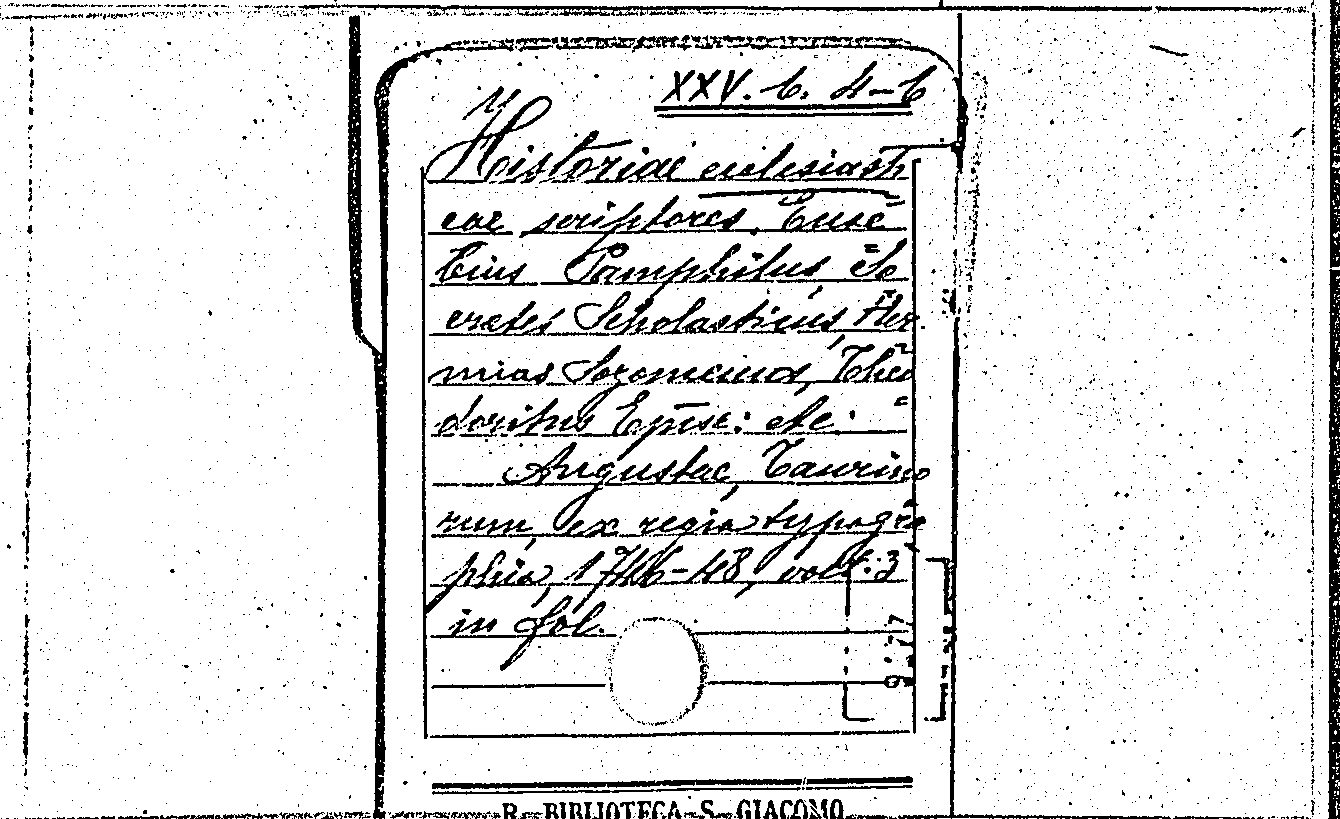 XXV. 6. 4-6
Historiae eclesiasti
cae scriptores. Euse=
bius Pamphilus, So=
cretes Scholasticus, Her=
mias Sozomenus, Theo=
doritus Epise: etc.
Augustae, Taurino
rum, ex regia typogra
phia, 1746-48, voll. 3
in fol.
R. BIBLIOTECA S. GIACOMO